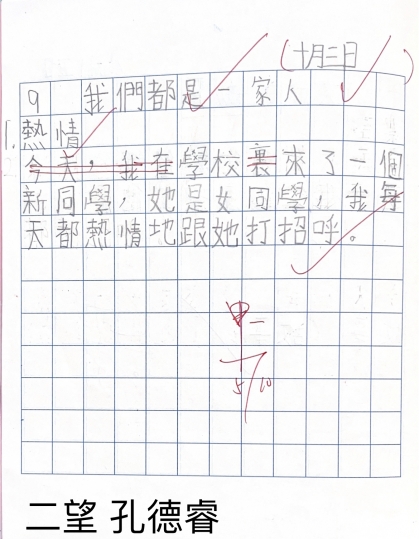 (十月三日)
9 我們都是一家人
1.熱情
今天，我在學校裏來了一個
新同學，她是女同學，我每
天都熱情地跟她打招呼。
甲一
5/10
二望 孔德睿